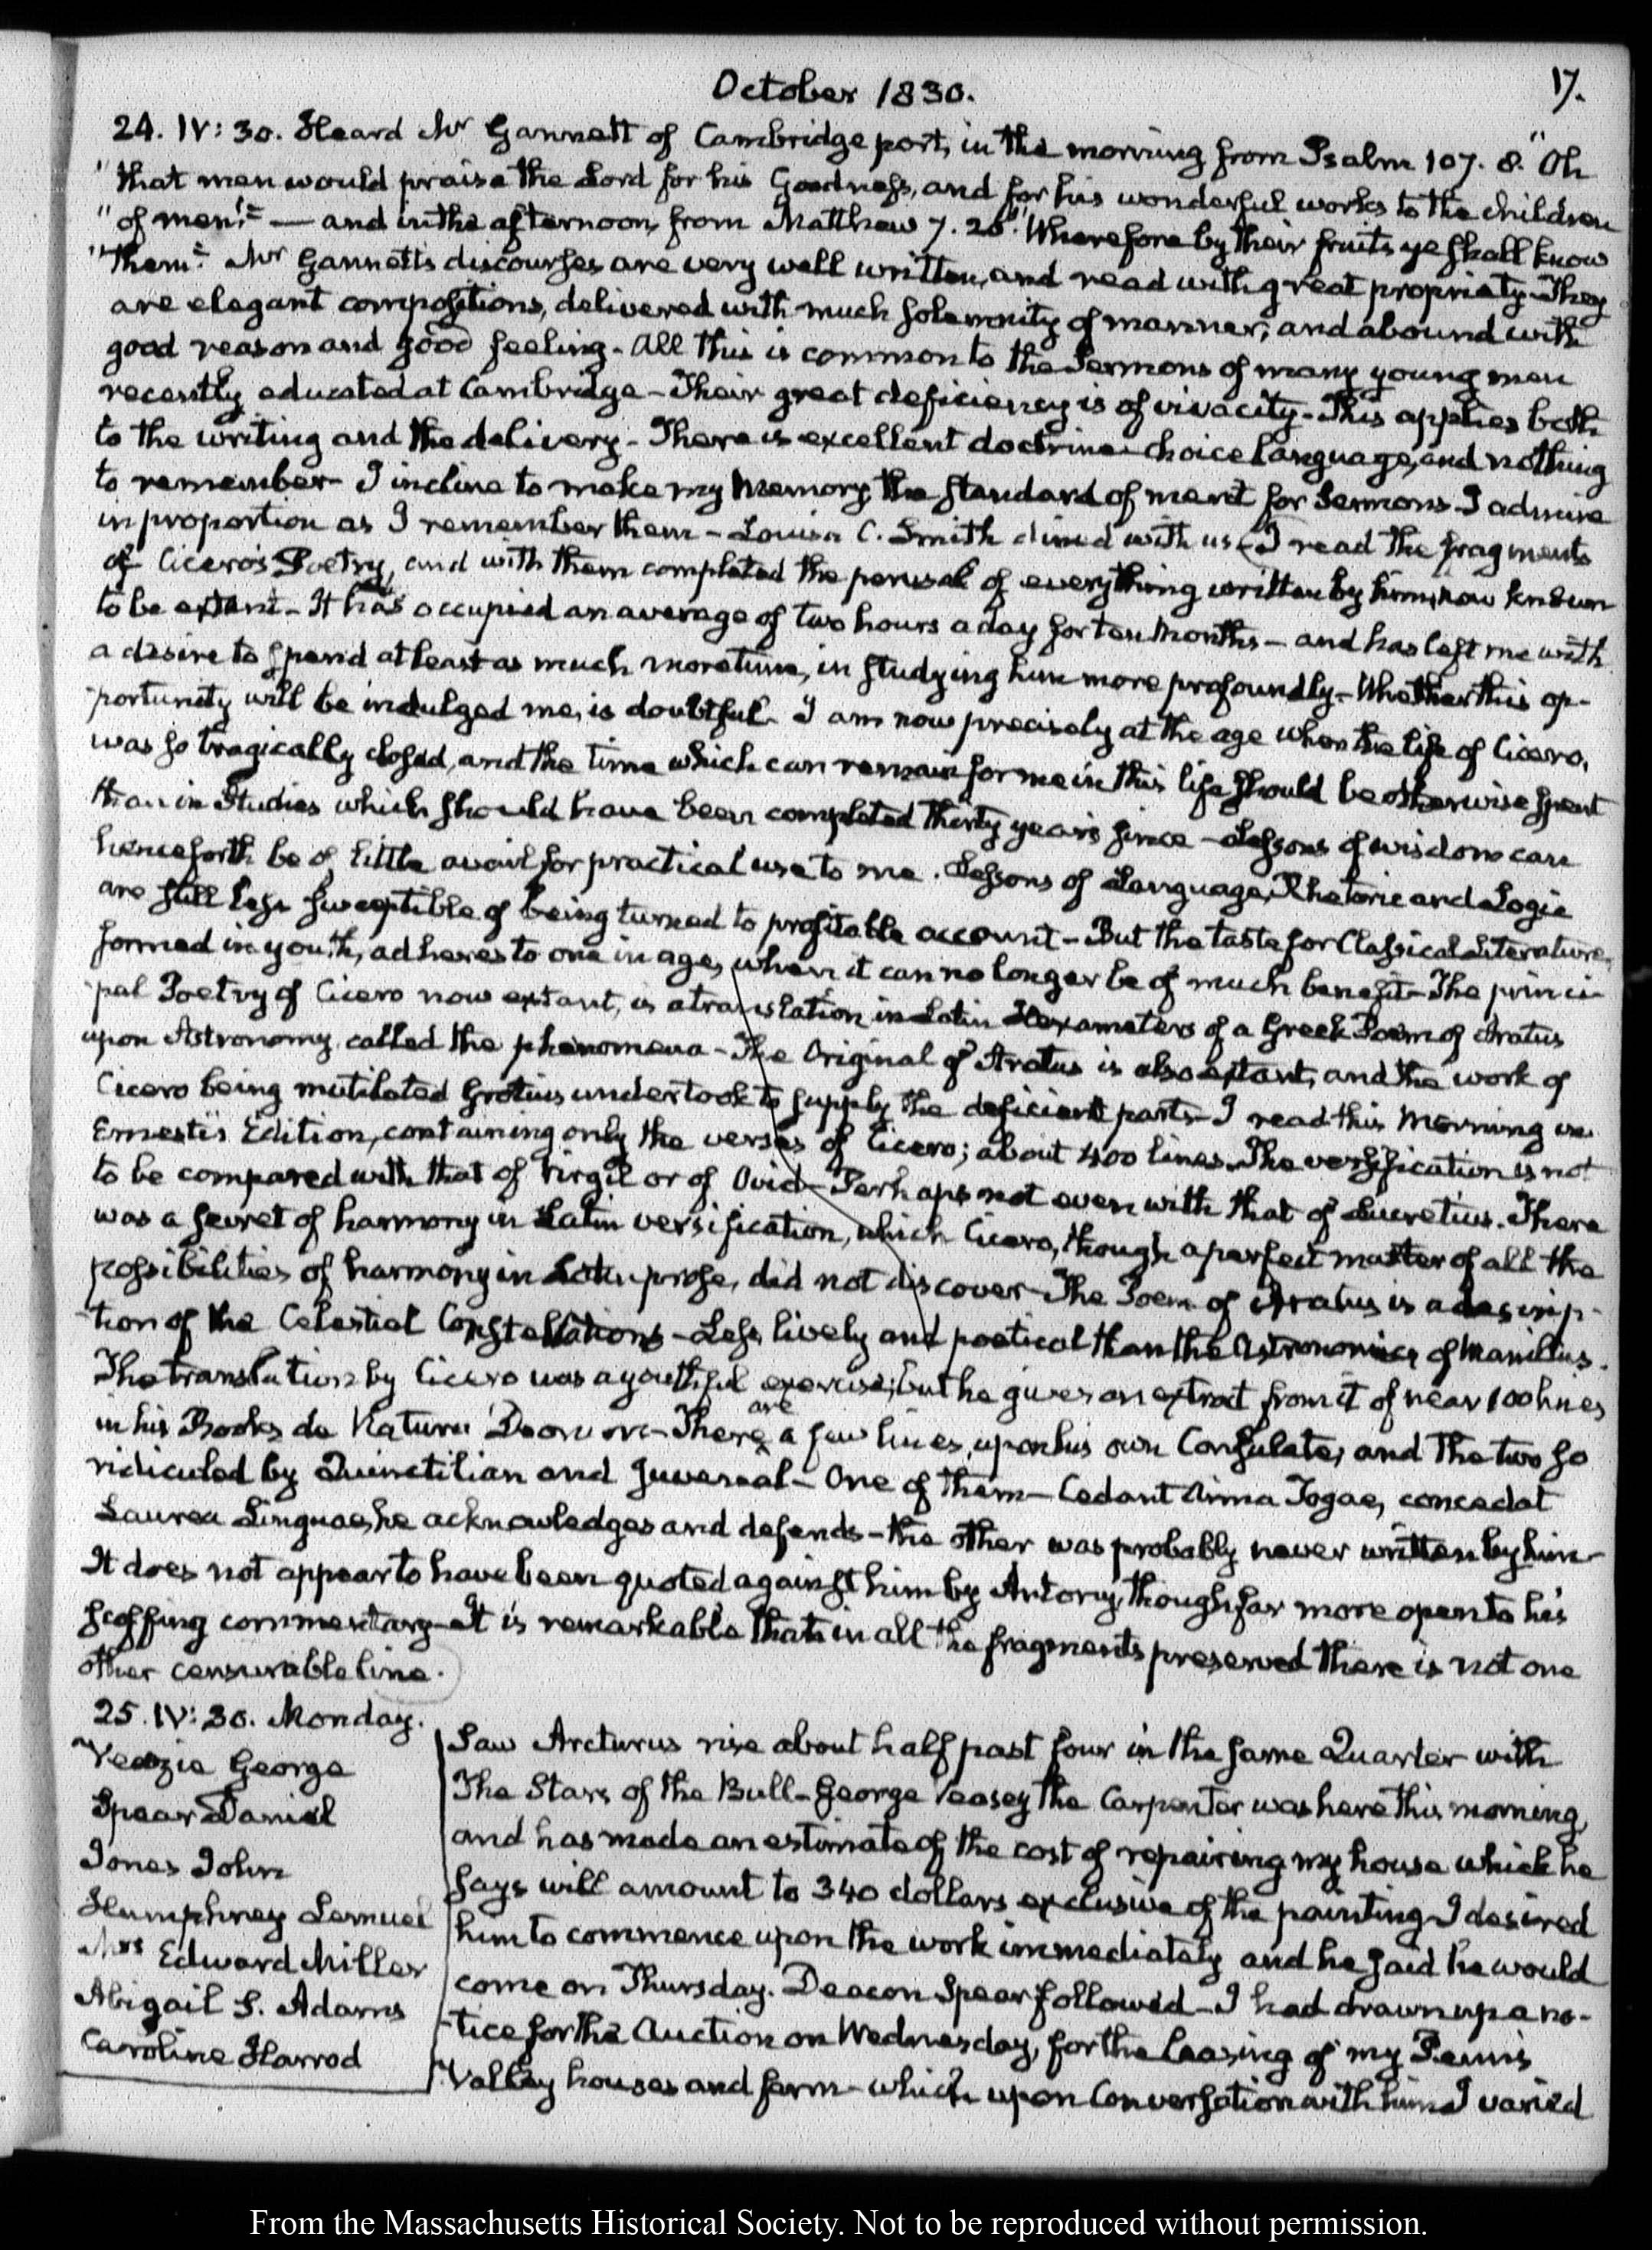 October 1830.
17.
24. IV: 30. Heard Mr Gannett of Cambridge port, in the morning from Psalm 107. 8. "Oh
"that men would praise the Lord for his Goodness, and for his wonderful works to the children
"of men!" — and in the afternoon, from Matthew 7. 20. "Wherefore by their fruits ye shall know
"them." Mr Gannett's discourses are very well written, and read with great propriety. They
are elegant compositions, delivered with much solemnity of manner; and abound with
good reason and good feeling. All this is common to the Sermons of many young men
recently educated at Cambridge - Their great deficiency is of vivacity - This applies both
to the writing and the delivery - There is excellent doctrine choice language, and nothing
to remember - I incline to make my Memory the standard of merit for Sermons. I admire
in proportion as I remember them - Louisa C. Smith dined with us (I read the fragments
of Cicero's Poetry, and with them completed the perusal of everything written by him, now known
to be extant - It has occupied an average of two hours a day for ten Months - and has left me with
a desire to spend at least as much more time, in studying him more profoundly - Whether this op-
portunity will be indulged me, is doubtful - I am now precisely at the age when the life of Cicero,
was so tragically closed, and the time which can remain for me in this life should be otherwise spent
than in Studies which should have been completed thirty years since - Lessons of wisdom can
henceforth be of little avail for practical use to me. Lessons of Language, Rhetoric and Logic
are still less susceptible of being turned to profitable account - But the taste for Classical Literature,
formed in youth, adheres to one in age, when it can no longer be of much benefit - The princi-
pal Poetry of Cicero now extant, is a translation in Latin Hexameters of a Greek Poem of Aratus
upon Astronomy, called the phenomena - The Original of Aratus is also extant, and the work of
Cicero being mutilated Grotius undertook to supply the deficient parts - I read this Morning in
Ernesti's Edition, containing only the verses of Cicero; about 400 lines. The versification is not
to be compared with that of Virgil or of Ovid - Perhaps not even with that of Lucretius. There
was a secret of harmony in Latin versification, which Cicero, though a perfect master of all the
possibilities of harmony in Latin prose, did not discover - The Poem of Aratus is a descrip-
tion of the Celestial Constellations - Less lively and poetical than the Astronomics of Manilius.
The translation by Cicero was a youthful exercise; but he gives an extract from it of near 100 lines
in his Books de Natura Deorum - There are a few lines, upon his own Consulate, and the two so
ridiculed by Quinctilian and Juvenal - One of them - Cedant Arma Togae, concedat
Laurea Linguae, he acknowledges and defends - the other was probably never written by him -
It does not appear to have been quoted against him by Antony, though far more open to his
scoffing commentary - It is remarkable that in all the fragments preserved there is not one
other censurable line.
25. IV: 30. Monday.
Veazie George
Spear Daniel
Jones John
Humphrey Lemuel
Mrs Edward Miller
Abigail S. Adams
Caroline Harrod
Saw Arcturus rise about half past four in the same Quarter with
The Stars of the Bull - George Veasey the Carpenter was here this morning,
and has made an estimate of the cost of repairing my house which he
says will amount to 340 dollars exclusive of the painting - I desired
him to commence upon the work immediately and he said he would
come on Thursday. Deacon Spear followed - I had drawn up a no-
tice for the Auction on Wednesday, for the leasing of my Penn's
Valley houses and farm - which upon Conversation with him I varied
From the Massachusetts Historical Society. Not to be reproduced without permission.